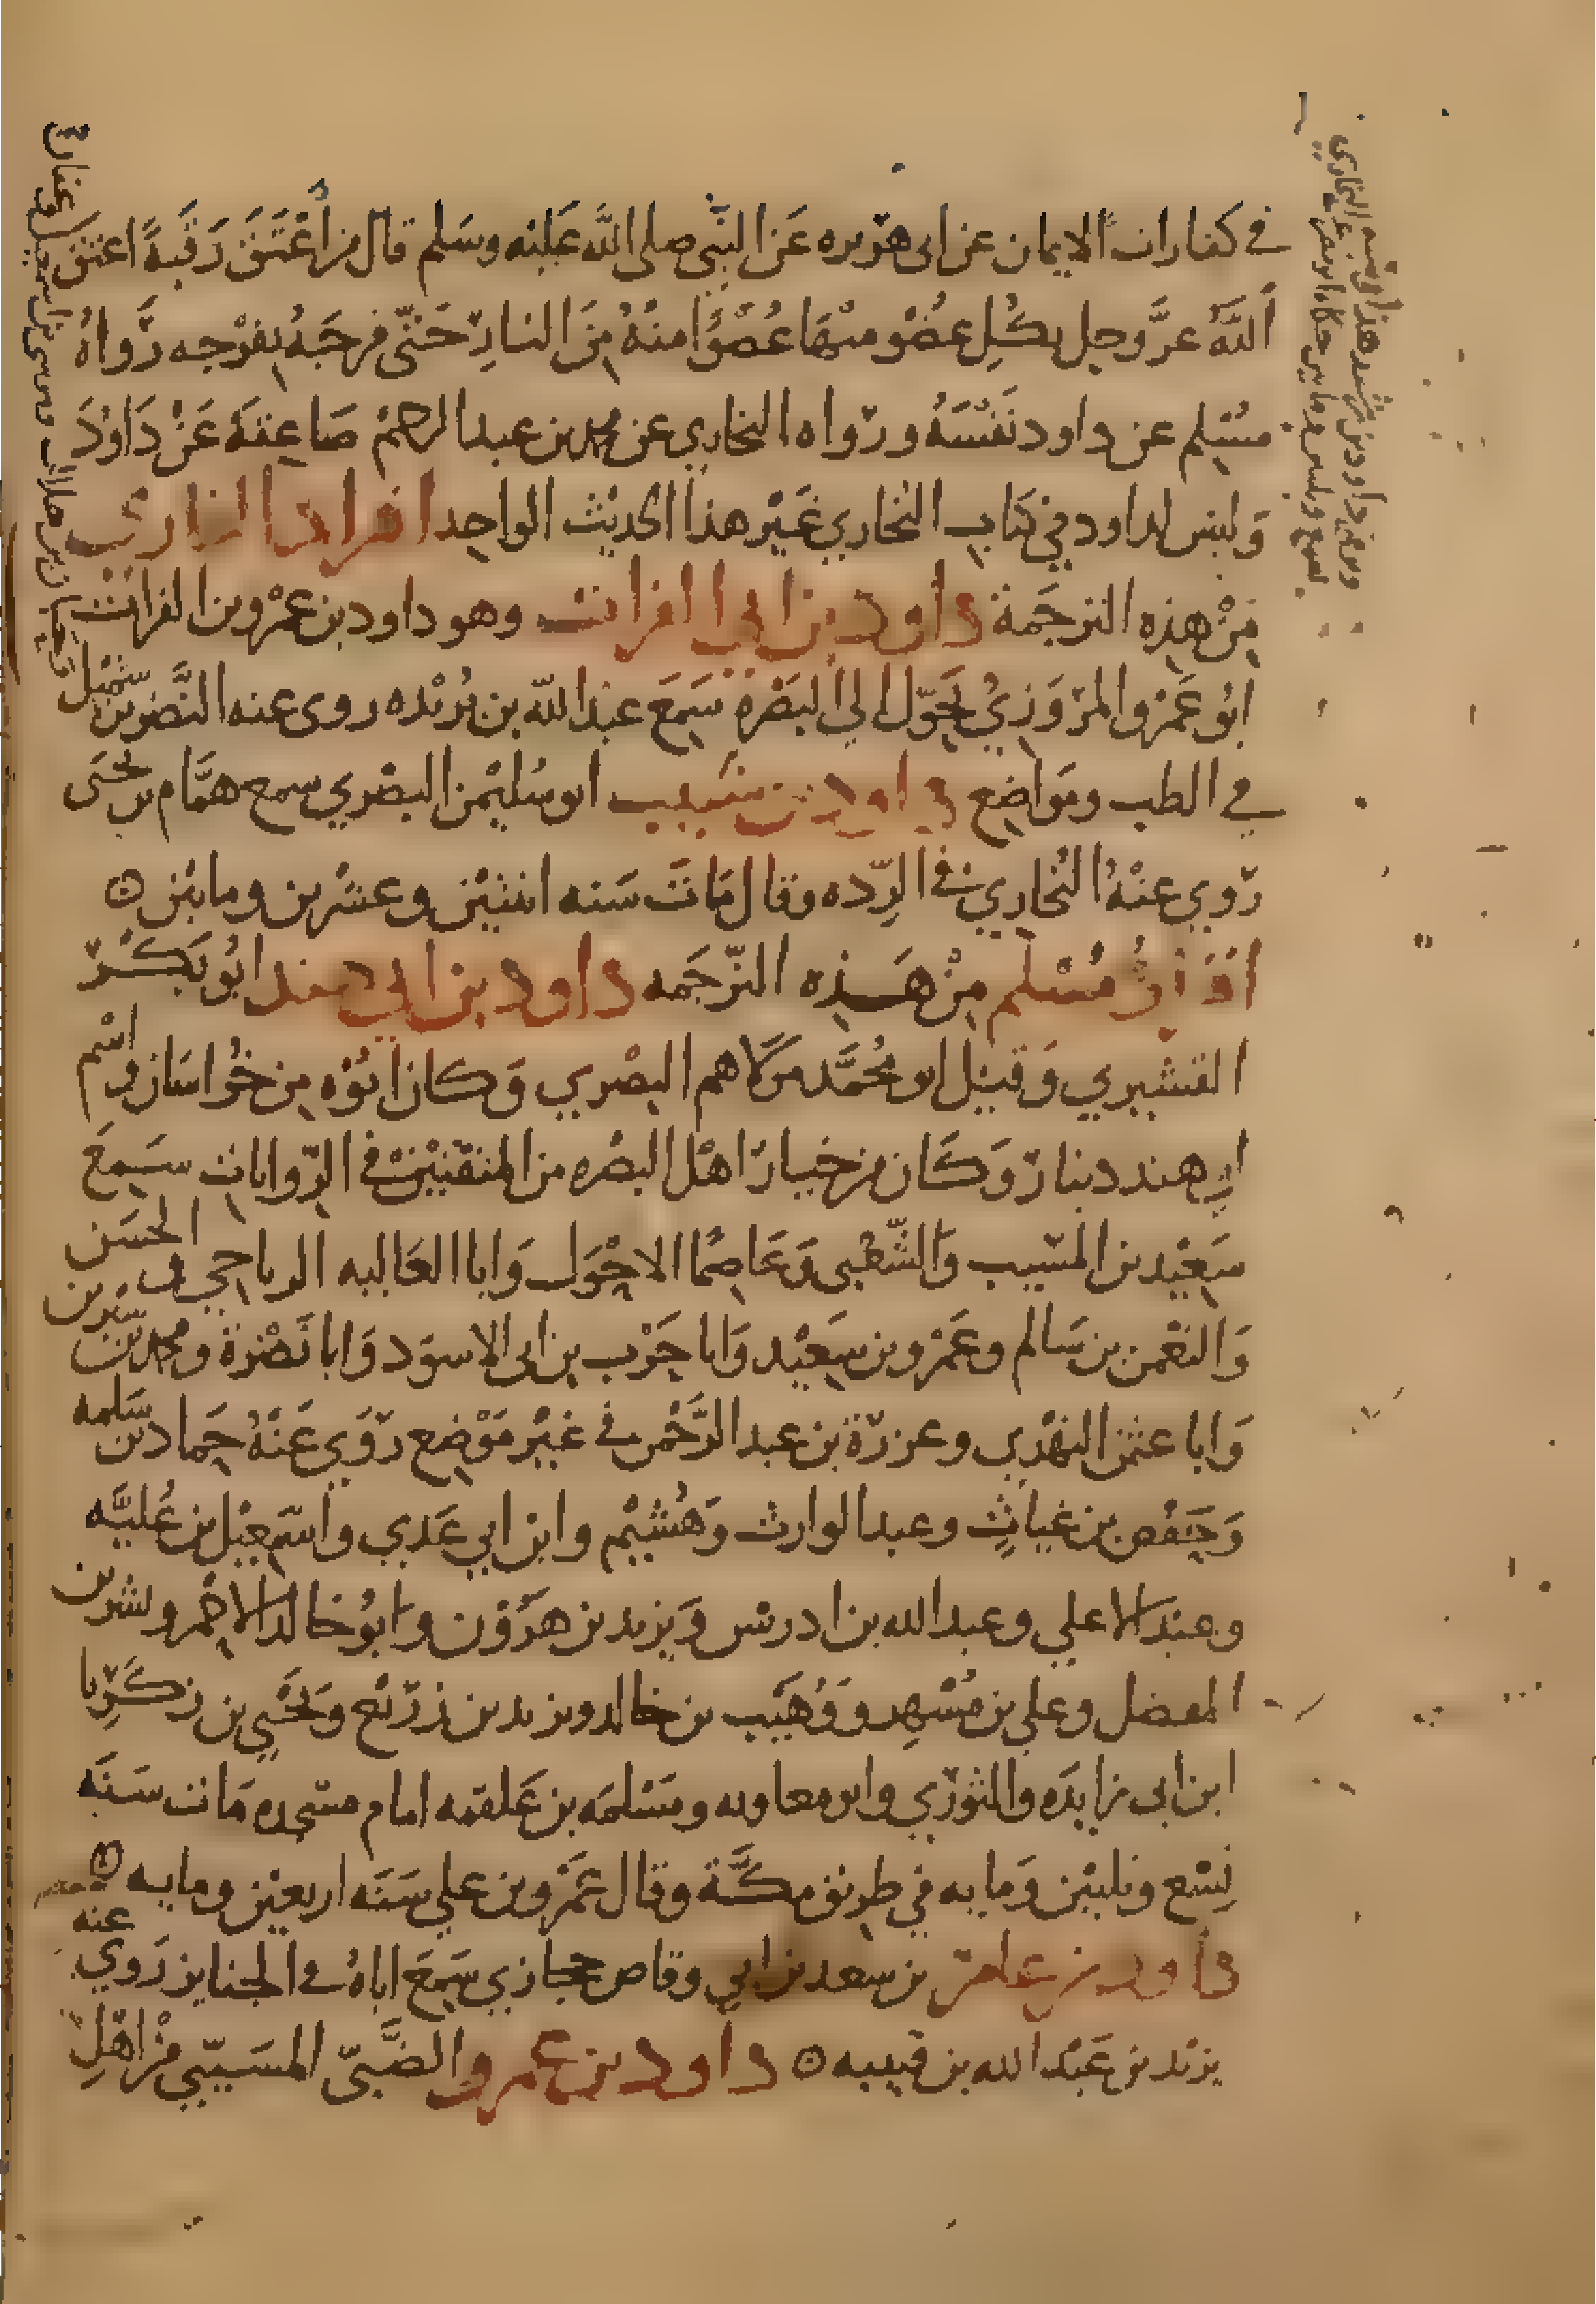 في كفارات الايمان عن ابى هريره عن النبي صلى الله عليه وسلم قال من أعتق رقبة اعتق
الله عز وجل بكل عضو منها عضوا منه من النار حتى فرجه بفرجه رواه
مسلم عن داود نفسه ورواه البخاري عن محمد بن عبد الرحيم صاعقة عن داود
وليس لداود في كتاب البخاري غير هذا الحديث الواحد افراد البخاري
من هذه الترجمة داود بن ابي الفرات وهو داود بن عمرو بن الفرات
ابو عمرو المروزي تحول الي البصرة سمع عبد الله بن بريده روى عنه النضر بن شميل
في الطب ومواضع داود بن شبيب ابو سليمن البصري سمع همام بن يحيى
روي عنه البخاري في الرده وقال مات سنه اثنتين وعشرين ومايتين
افراد مسلم من هذه الترجمه داود بن ابي هند ابو بكر
القشيري وقيل ابو محمد مولاهم البصري وكان ابوه من خراسان واسم
ابي هند دينار وكان من خيار اهل البصره من المتقنين في الروايات سمع
سعيد بن المسيب والشعبي وعاصما الاحول وابا العاليه الرياحي والحسن
والنعمن بن سالم وعمرو بن سعيد وابا حرب بن ابى الاسود وابا نضرة ومحمد بن سيرين
وابا عثمن النهدي وعزرة بن عبد الرحمن في غير موضع روى عنه حماد بن سلمه
وحفص بن غياث وعبد الوارث وهشيم وابن ابي عدي واسمعيل بن عليه
وعبد الاعلي وعبد الله بن ادريس ويزيد بن هرون وابو خالد الاحمر وبشر بن
المفضل وعلي بن مسهر ووهيب بن خالد ويزيد بن زريع ويحيي بن زكريا
ابن ابى زايده والثوري وابو معاويه ومسلمه بن علقمه امام مسجده مات سنه
تسع وثلثين ومايه في طريق مكة وقال عمرو بن علي سنه اربعين ومايه
داود بن عامر بن سعد بن ابي وقاص حجازي سمع اباه في الجنايز روي عنه
يزيد بن عبد الله بن قسيط داود بن عمرو الضبي المسيبي من اهل